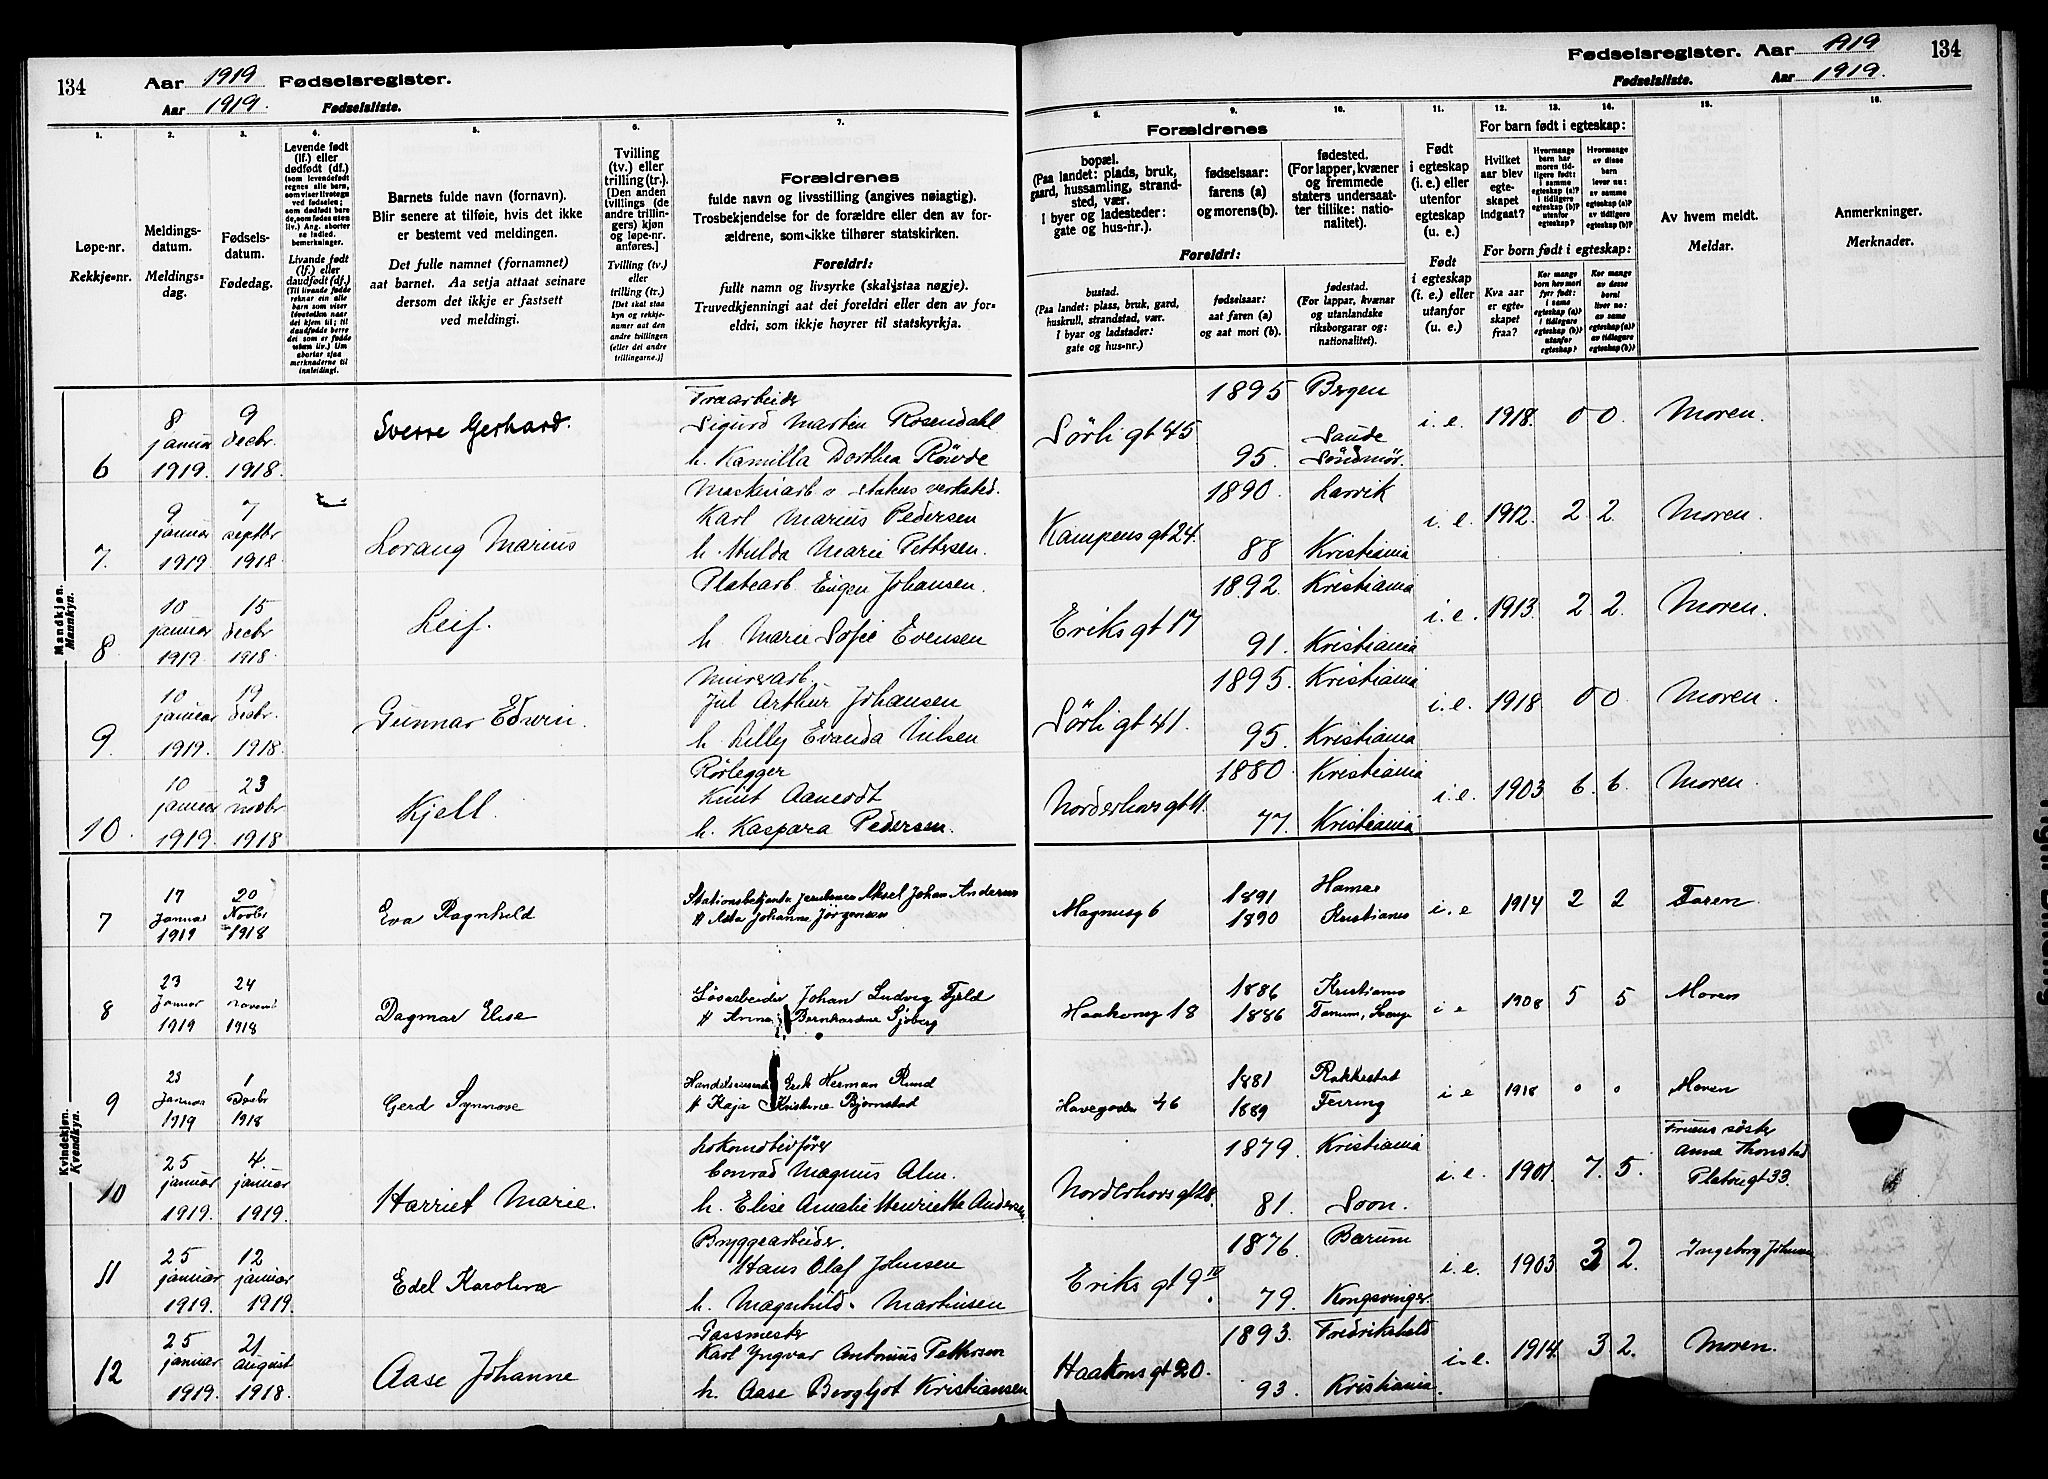 134
Aar 1919 Fødselsregister.
Aar 1919. Fødselsliste.
Fødselsregister. Aar 1919 134
Fødselsliste. Aar 1919.
1.
Løpe-nr.
Rekkje-nr.
2.
Meldings-
datum.
Meldings-
dag.
3.
Fødsels-
datum.
Fødedag.
4.
Levende født
(lf.) eller
dødfødt (df.)
5.
Barnets fulde navn (fornavn).
Blir senere at tilføie, hvis det ikke
er bestemt ved meldingen.
Det fulle namnet (fornamnet)
aat barnet. Aa setja attaat seinare
dersom det ikkje er fastsett
ved meldingi.
6.
Tvilling
(tv.) eller
trilling (tr.).
[Den anden
tvillings (de
andre trillin-
gers) kjøn
og løpe-nr.
anføres.]
Tvilling (tv.)
eller
trilling (tr.)
7.
Forældrenes
fulde navn og livsstilling (angives nøiagtig).
Trosbekjendelse for de forældre eller den av for-
ældrene, som ikke tilhører statskirken.
Foreldri:
fullt namn og livsyrke (skal staa nøgje).
Truvedkjenningi aat dei foreldri eller den av for-
eldri, som ikkje høyrer til statskyrkja.
8.
9.
10.
Forældrenes
bopæl.
(Paa landet: plads, bruk,
gaard, hussamling, strand-
sted, vær.
I byer og ladesteder:
gate og hus-nr.).
fødselsaar:
farens (a)
og morens (b).
fødested.
(For lapper, kvæner
og fremmede
staters undersaat-
ter tillike: natio-
nalitet).
Foreldri:
bustad.
(Paa landet: plass, bruk, gard,
huskrull, strandstad, vær.
I byar og ladstader:
gate og hus-nr.)
fødselsaar:
aat faren (a)
og aat mori (b).
fødestad.
(For lappar, kvænar
og utanlandske
riksborgarar og:
nationalitet).
11.
Født
i egteskap
(i. e.) eller
utenfor
egteskap
(u. e.)
Født
i egteskap
(i. e.) eller
utanfor
(u. e.)
12.
13.
14.
For barn født i egteskap:
Hvilket
aar blev
egte-
skapet
indgaat?
For born født i egteskap:
Kva aar
er egte-
skapet
fraa?
15.
Av hvem meldt.
Meldar.
16.
Anmerkninger.
Merknader.
Mandkjøn.
Mannkyn.
6
8 januar 1919.
9 decbr 1918.
Sverre Gerhard.
Sigurd Martin Rosendahl
h. Kamilla Dorthea
Sørligt 45
1895 Bergen
95. Sande Søndmør.
i. e. 1918. 0 0 Moren.
7.
9 januar 1919.
7 septbr 1918.
Lorang Marius
Karl Marius Pedersen
h. Hulda Marie Pettersen.
Kampens gt 24.
1890. Larvik
88 Kristiania
i. e. 1912. 2 2. Moren.
8
10 januar 1919.
15 decbr 1918.
Leif.
Platearb Eugen Johansen.
h. Marie Sofie Evensen
Eriks gt 17
1892. Kristiania
91. Kristiania
i. e. 1913. 2 2. Moren.
9.
10 januar 1919.
19 decbr. 1918.
Gunnar Edwin.
Murerarb.
Jul Arthur Johansen
h. Lilly Evanda Nilsen
Sørligt 41.
1895. Kristiania
95. Kristiania
i. e. 1918. 0 0. Moren.
10.
10 januar 1919.
23 novbr 1918.
Kjell.
Rørlegger
Knut Aanerødt
h. Kaspara Pedersen.
Norderhovs gt 11.
1880. Kristiania
77. Kristiania
i. e. 1903 6. 6. Moren.
Kvindekjøn.
Kvendkyn.
7
17 Januar 1919
20 Novbr 1918
Eva Ragnhild
Stationsbetjent v jernbanen Aksel Johan Andersen
H Asta Johanne Jørgensen
Magnusg 6
1891 Hamar
1890 Kristiania
i. e 1914 2 2 Faren.
8
23 Januar 1919
24 novemb 1918
Dagmar Elise
Johan Ludvig Fjeld
H Anna Bernhardine Sjøberg
Haakonsg 18
1886 Kristiania
1886 Tanum,
i e 1908 5 5 Moren
9
23 Januar 1919
1 Decbr 1918
Gerd Synnøve
Handelsreisende Erik Herman Rund
H Kaja Kristine Bjørnstad
Havegaden 46
1881 Rakkestad
1889 Feiring
i e 1918 0 0 Moren
10
25 januar 1919.
4. januar 1919.
Harriet Marie.
Lokomotivfører
Conrad Magnus Alm.
h. Elise Amalie Henriette Andersen.
Norderhovs gt 28.
1879. Kristiania
81. Soon.
i. e. 1901. 7. 5.
Fruens søster
Anna Thonstad
Platous gt 33.
11
25 januar 1919.
12 januar 1919.
Edel Karoline
Bryggearbeider.
Hans Olaf Johnsen
h. Magnhild Martinsen
Eriks gt 9 IV.
1876. Bærum
79. Kongsvinger.
i. e. 1903. 3 2. Ingeborg Johnsen
12
25 januar 1919.
21. august 1918.
Aase Johanne
Gassmester
Karl Yngvar Antonius Pettersen
h. Aase Bergljot Kristiansen
Haakons gt 20.
1893. Fredrikshald
93. Kristiania.
i. e. 1914. 3 2. Moren.